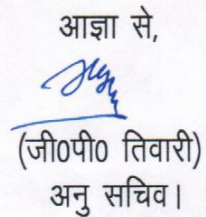 आज्ञा से,
(जी0पी0 तिवारी)
अनु सचिव।